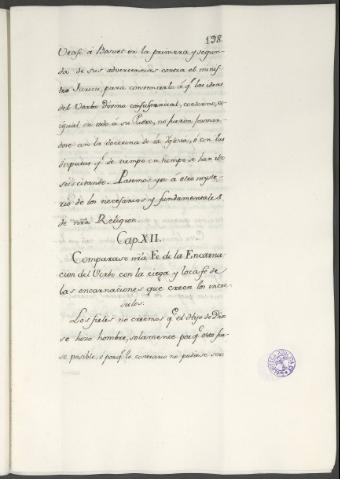 198.
Vease á Bosuet en la primera y segun-
da de sus advertencias contra el minis-
tro Jurieu, para convencerla de q.e las ideas
del Verbo divino consustancial, coeterno, é
igual en todo á su Padre, no fueron
la doctrina de la Iglesia, ó con las
disputas q.e de tiempo en tiempo se han ido
suscitando. Pasemos ya á otro myste-
rio de los necesarios y fundamentales
de ntra Religion.
Cap. XII.
Comparase ntra Fe de la Encarna-
cion del Verbo con la ciega y loca fe de
las encarnaciones que creen los incre-
dulos.
Los fieles no creemos q.e el Hijo de Dios
se hizo hombre, solamente porq.e esto fue-
se posible, y porq.e lo contrario no pudiese